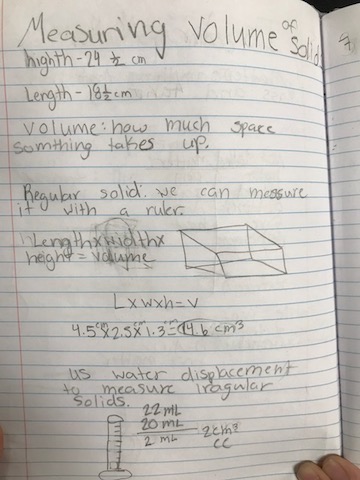 Measuring Volume of Solid
highth - 24 ½ cm
Length - 18½ cm
Volume: how much space
somthing takes up.
Regular solid: we can measure
it with a ruler.
Length x width x
height = volume
L x w x h = v
4.5 cm x 2.5 cm x 1.3 cm = 14.6 cm³
us water displacement
to measure iragular
solids.
22 mL
20 mL
2 mL
2cm³
cc